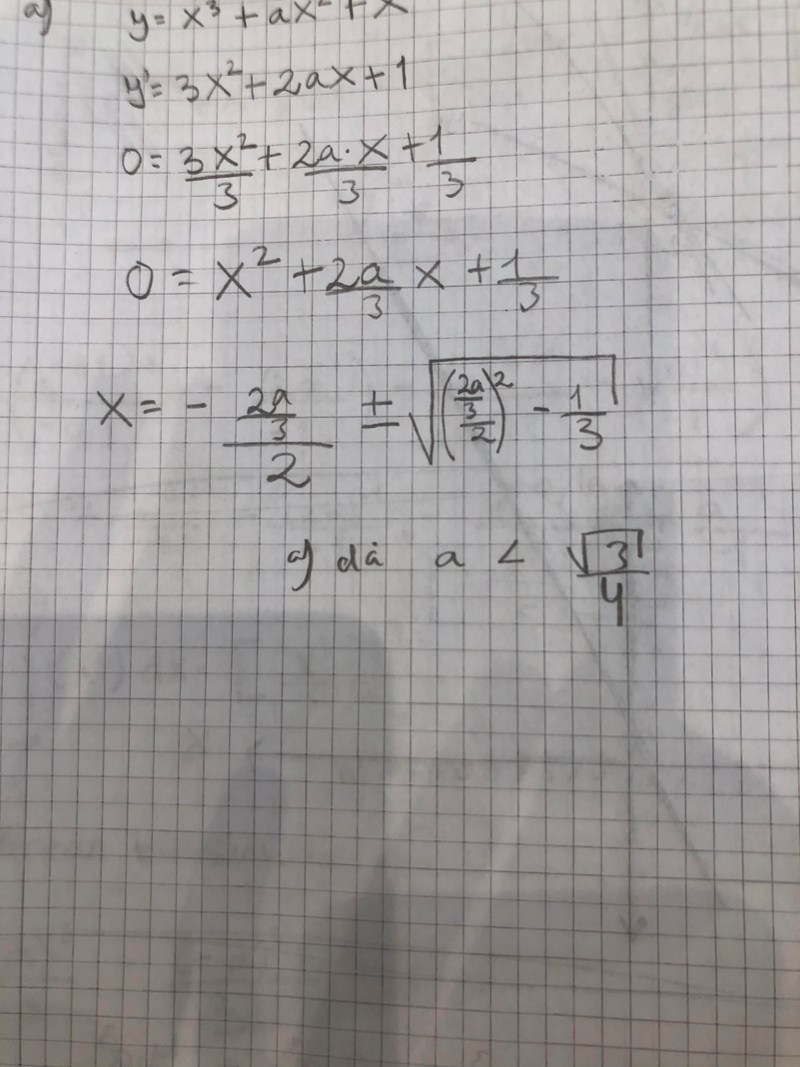 a) y = x³ + ax² + x
y' = 3x² + 2ax + 1
0 = 3x²/3 + 2a·x/3 + 1/3
0 = x² + 2a/3 x + 1/3
x = - (2a/3)/2 ± √(((2a/3)/2)² - 1/3)
a) då a < √3/4